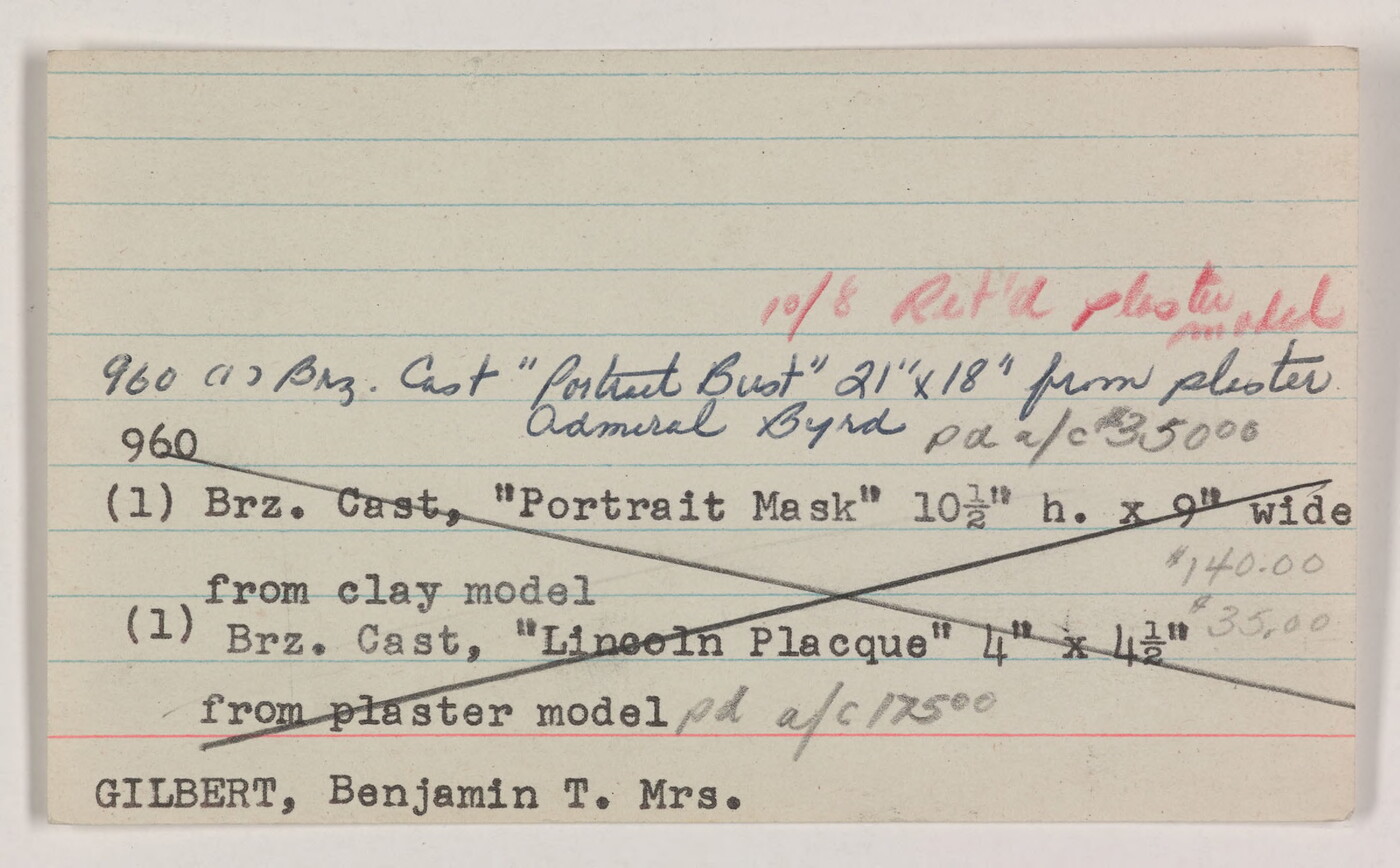 10/8 Ret'd plaster
model
960 (1) Brz. Cast "Portrait Bust" 21"x18" from plaster
Admiral Byrd pd a/c $35000
960
(1) Brz. Cast, "Portrait Mask" 10½" h. x 9" wide
$140.00
from clay model
$35.00
(1) Brz. Cast, "Lincoln Placque" 4" x 4½"
from plaster model pd a/c 17500
GILBERT, Benjamin T. Mrs.